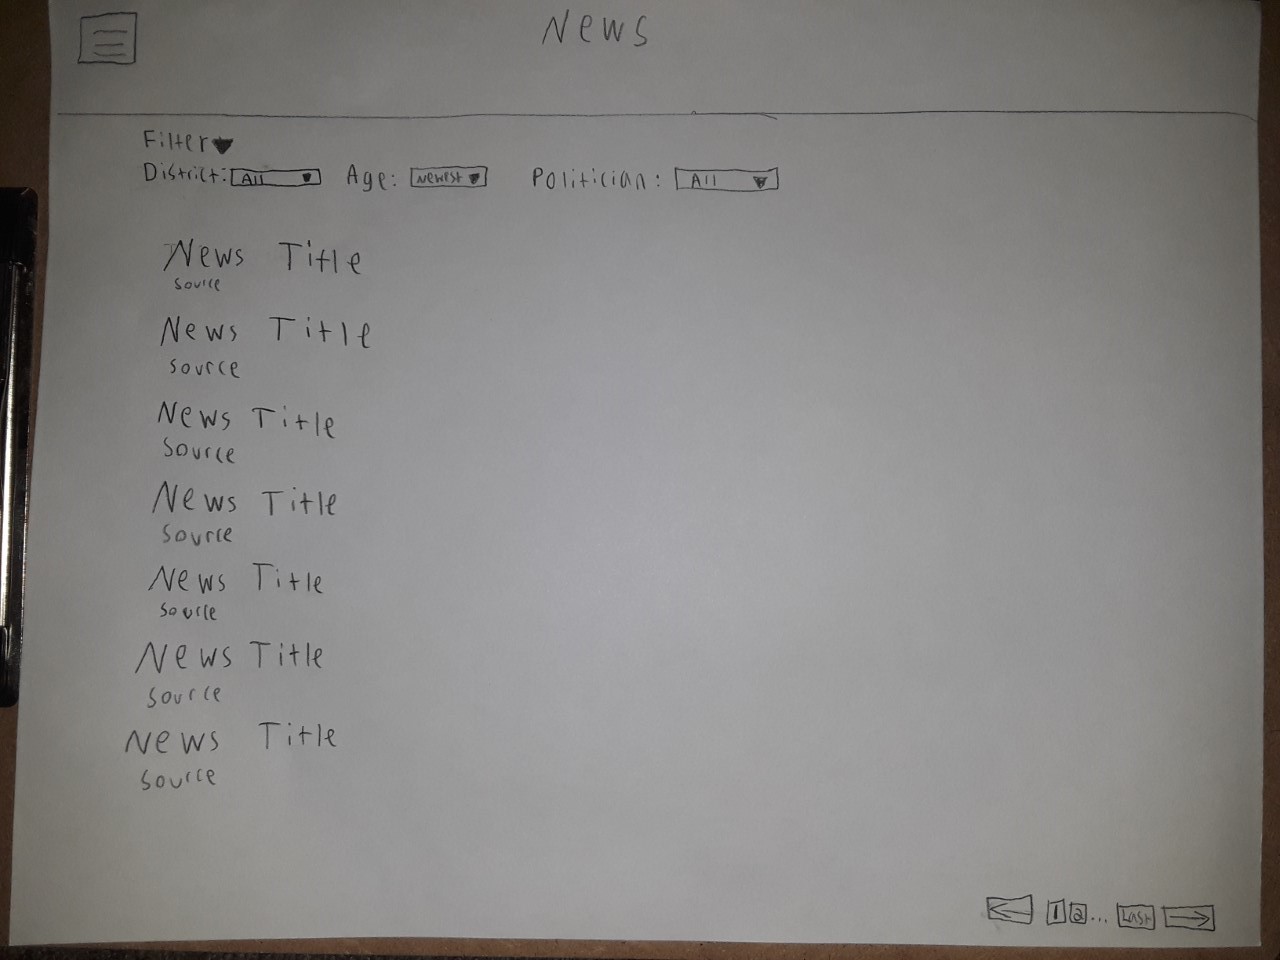 News
Filter
District: All Age: Newest Politician: All
News Title
Source
News Title
Source
News Title
Source
News Title
Source
News Title
Source
News Title
Source
News Title
Source
1 2 ... Last